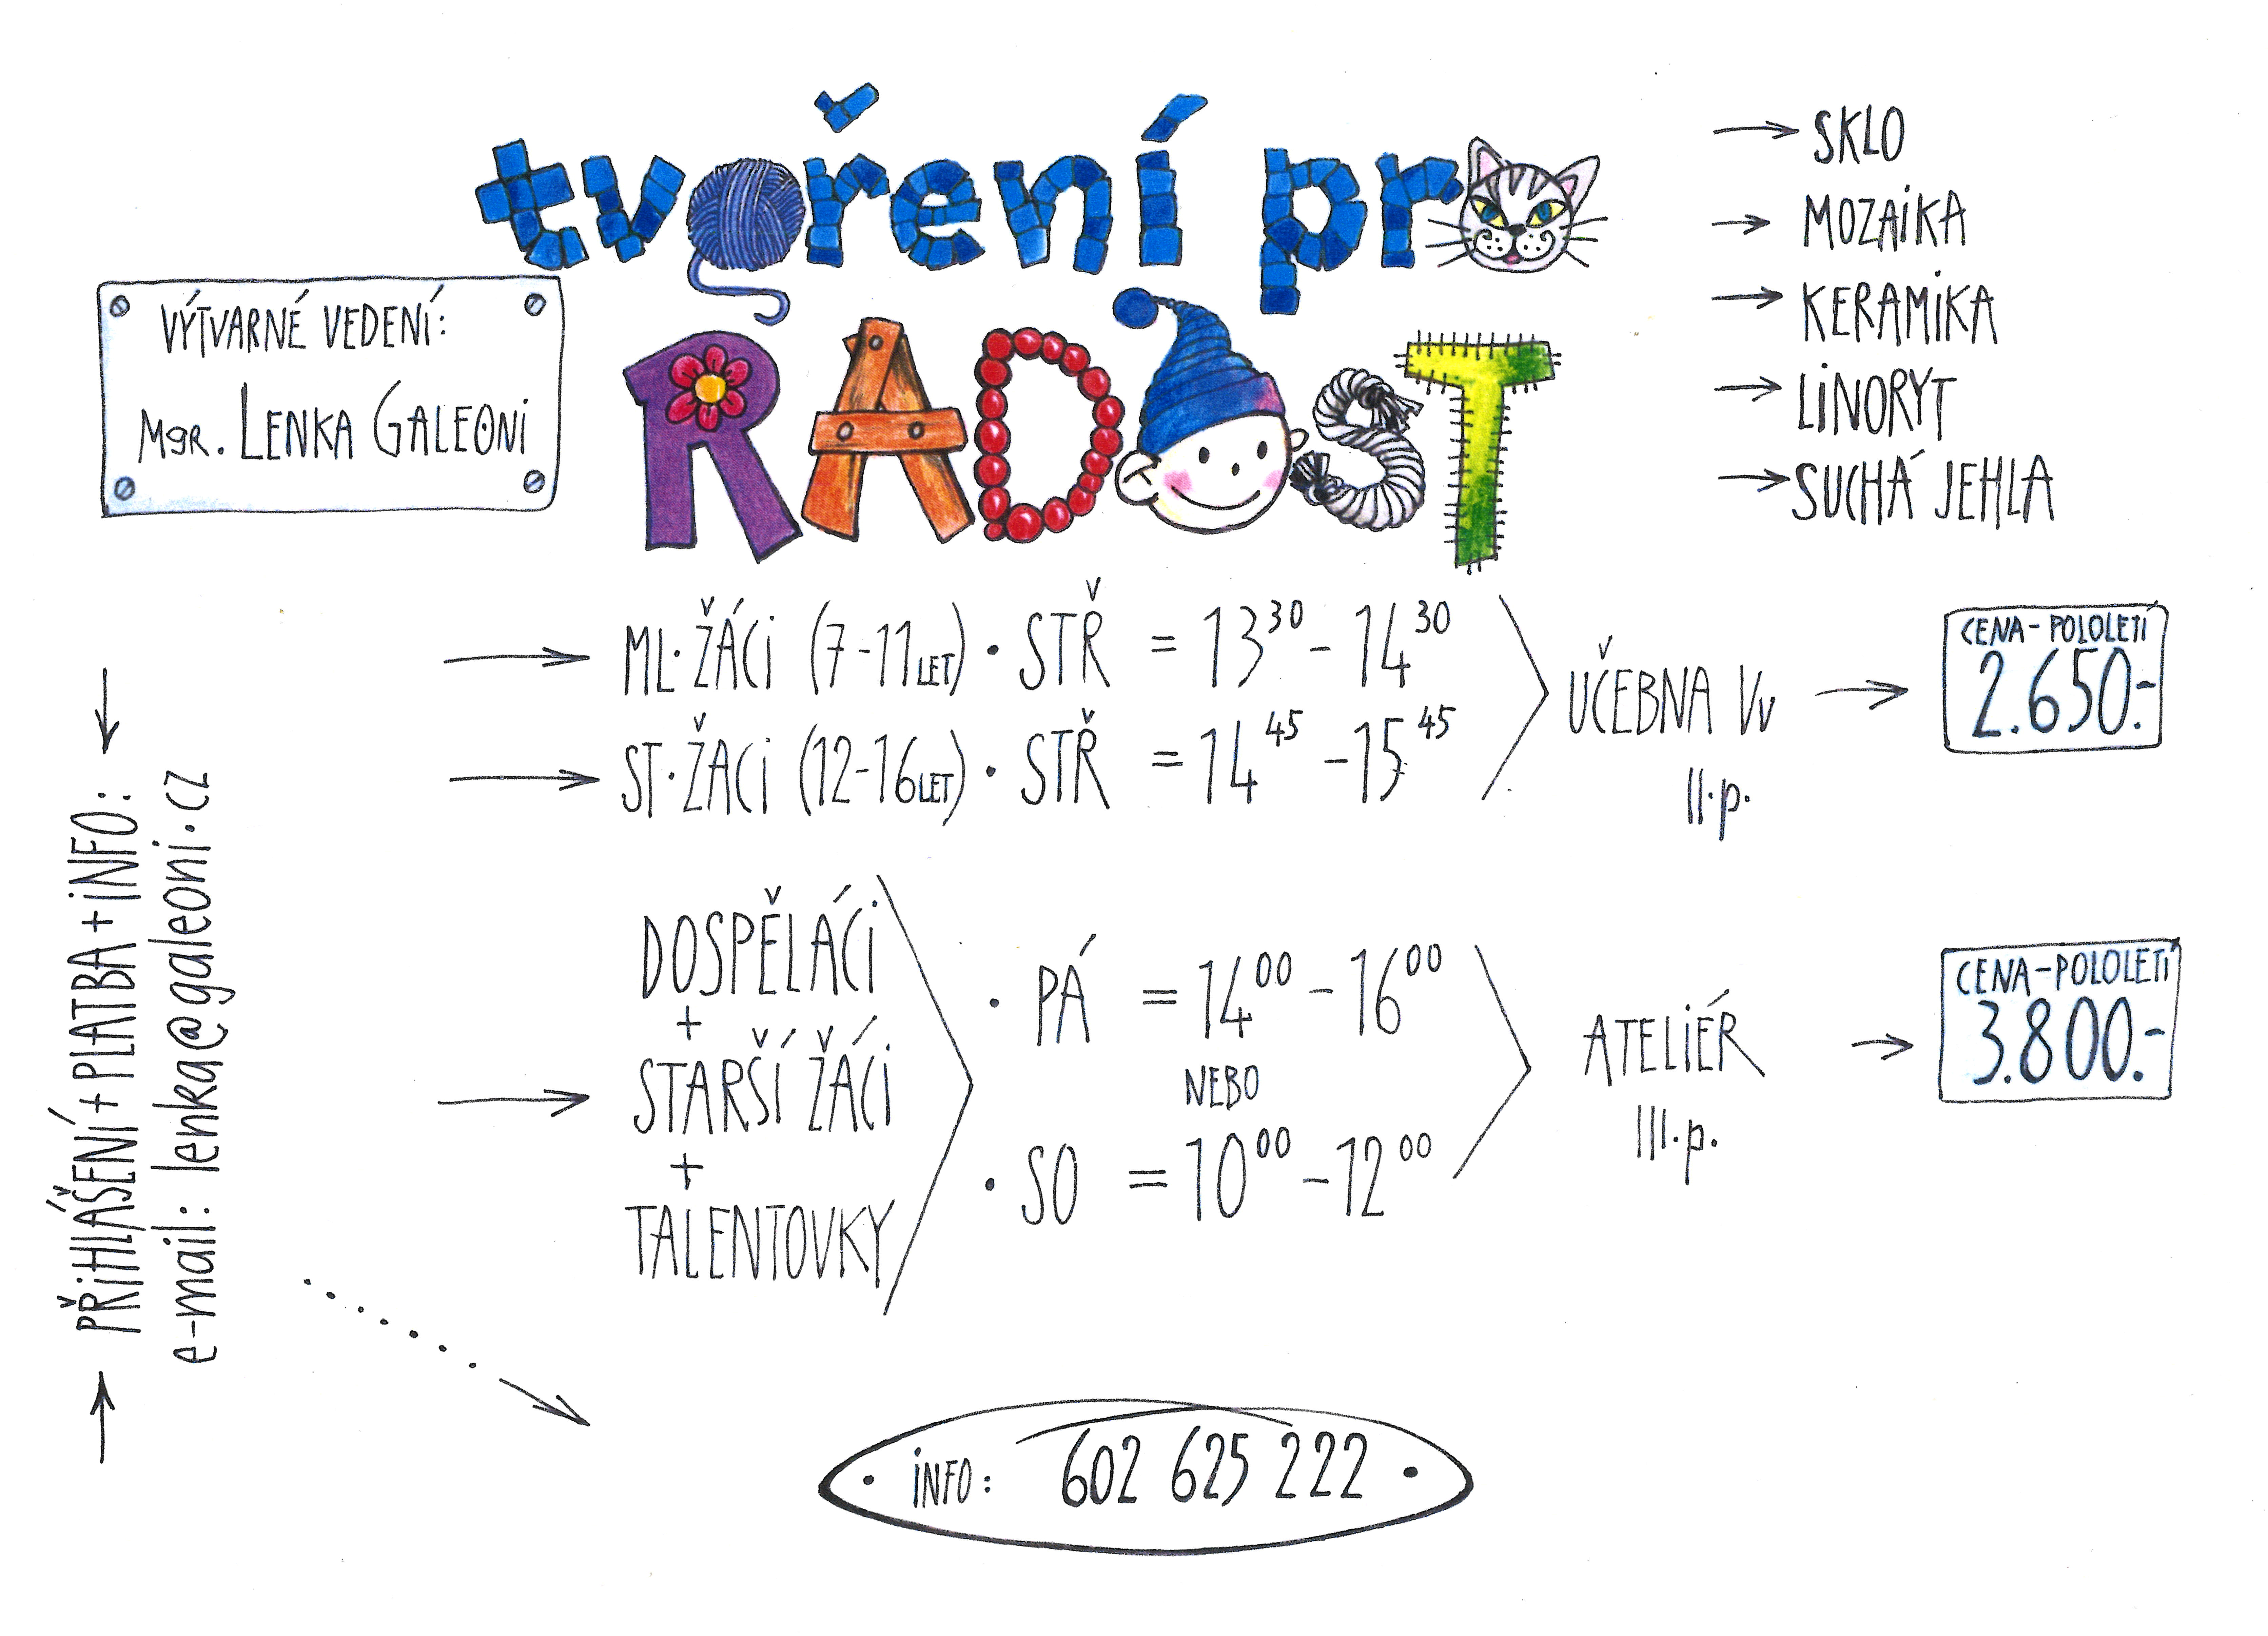 tvoření pro
RADOST
VÝTVARNÉ VEDENÍ:
Mgr. LENKA GALEONI
→ SKLO
→ MOZAIKA
→ KERAMIKA
→ LINORYT
→ SUCHÁ JEHLA
→ ML. ŽÁCI (7-11 LET) • STŘ = 13³⁰ - 14³⁰
→ ST. ŽÁCI (12-16 LET) • STŘ = 14⁴⁵ - 15⁴⁵
UČEBNA Vv →
II.p.
CENA - POLOLETÍ
2.650.-
→ DOSPĚLÁCI
+
STARŠÍ ŽÁCI
+
TALENTOVKY
• PÁ = 14⁰⁰ - 16⁰⁰
NEBO
• SO = 10⁰⁰ - 12⁰⁰
ATELIÉR →
III.p.
CENA - POLOLETÍ
3.800.-
→ PŘIHLÁŠENÍ + PLATBA + INFO: ←
e-mail: lenka@galeoni.cz
• INFO: 602 625 222 •